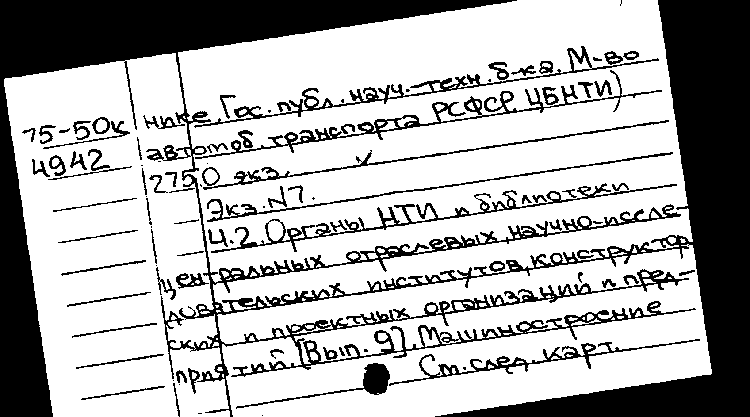 75-50к
4942
нике. Гос. публ. науч.-техн. б-ка. М-во
автомоб. транспорта РСФСР. ЦБНТИ).
2750 экз. ✓
Экз. N7.
Ч.2. Органы НТИ и библиотеки
центральных отраслевых, научно-иссле-
довательских институтов, конструктор-
ских и проектных организаций и пред-
приятий. [Вып. 9]. Машиностроение
См. след. карт.